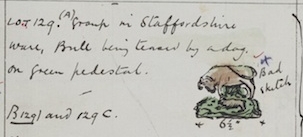 Lot 129. (A) Group in Staffordshire
ware, Bull being teased by a dog,
on green pedestal.
Bad
sketch
B 129) and 129 C.
6½"